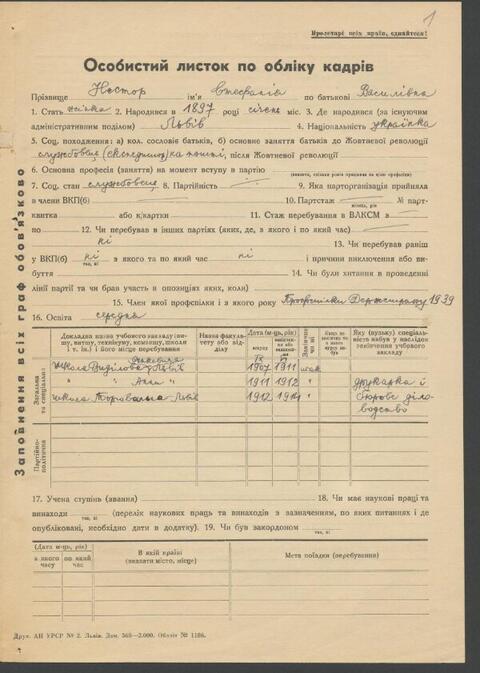 1
Пролетарі всіх країн, єднайтеся!
Особистий листок по обліку кадрів
Прізвище Нестор ім'я Стефанія по батькові Василівна
1. Стать жінка 2. Народився в 1897 році січень міс. 3. Де народився (за існуючим
адміністративним поділом) Львів 4. Національність українка
5. Соц. походження: а) кол. сословіє батьків, б) основне заняття батьків до Жовтневої революції
службовець на пошті, після Жовтневої революції
6. Основна професія (заняття) на момент вступу в партію
7. Соц. стан службовець 8. Партійність — 9. Яка парторганізація прийняла
в члени ВКП(б) 10. Партстаж № парт-
місяць, рік
квитка або к/картки 11. Стаж перебування в ВЛКСМ з
по 12. Чи перебував в інших партіях (яких, де, з якого і по який час)
ні 13. Чи перебував раніш
у ВКП(б) ні з якого та по який час ні і причини виключення або ви-
так, ні
буття 14. Чи були хитання в проведенні
лінії партії та чи брав участь в опозиціях яких, коли)
15. Член якої профспілки і з якого року Профспілки Держстраху 1939
16. Освіта середня
Заповнення всіх граф обов'язково
Загальна та спеціальна
Партійно-політична
Докладна назва учбового закладу (ви-
шу, втишу, технікуму, комвишу, школи
і т. ін.) і його місце перебування
Назва факуль-
тету або від-
ділу
Дата (м-ць, рік)
вступу
Закінчив
чи ні
Яку (вузьку) спеціаль-
ність набув у наслідок
закінчення учбового
закладу
Школа Виділова Львів 1907 1911 так
" " 1911 1912 " друкарка й
Школа Торговельна Львів 1912 " бюрове діло-
водство
17. Учена ступінь (звання) 18. Чи має наукові праці та
винаходи (перелік наукових праць та винаходів з зазначенням, по яких питаннях і де
так, ні
опубліковані, необхідно дати в додатку). 19. Чи був закордоном
так, ні
(Дата м-ць, рік)
з якого часу
по який час
В якій країні
(вказати місто, місце)
Мета поїздки (перебування)
Друк. АН УРСР № 2. Львів. Зам. 565—2.000. Обліт № 1186.